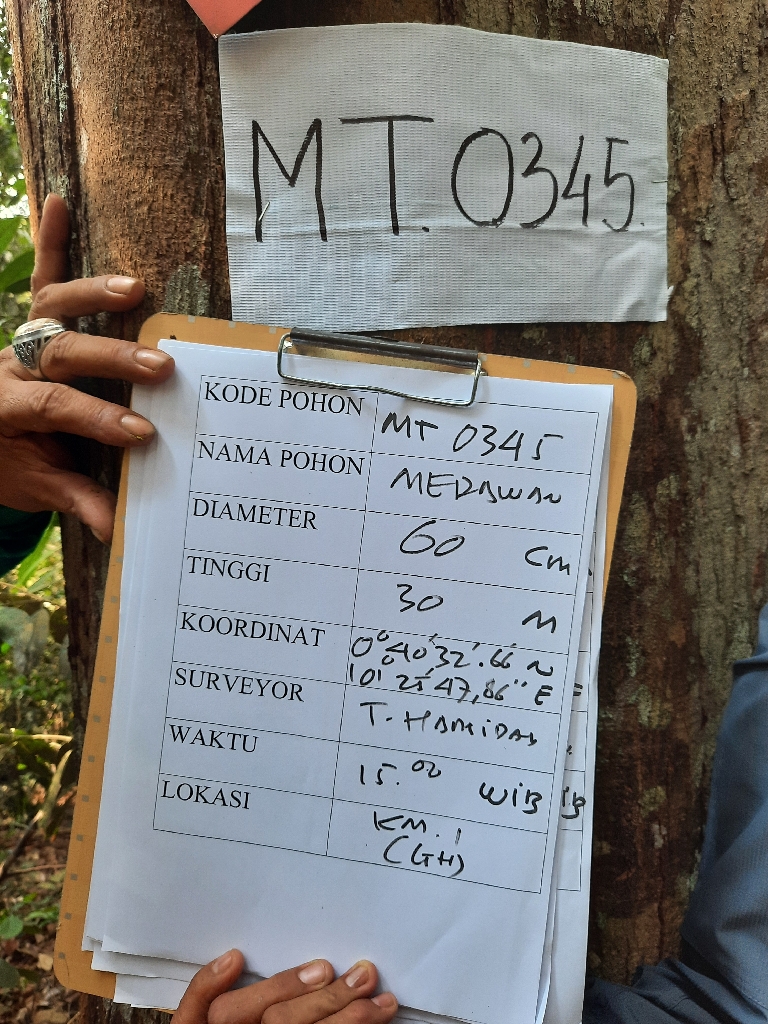 MT.0345.
KODE POHON MT 0345
NAMA POHON MERAWAN
DIAMETER 60 Cm
TINGGI 30 M
KOORDINAT 0°40'32".66 N
101°25'47,86" E
SURVEYOR T. HAMIDAN
WAKTU 15.00 WIB
LOKASI KM. 1
(GH)